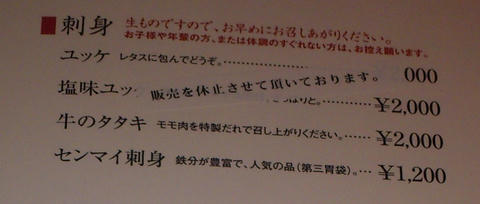 刺身 生ものですので、お早めにお召しあがりください。
お子様や年輩の方、または体調のすぐれない方は、お控え願います。
ユッケ レタスに包んでどうぞ。 000
販売を休止させて頂いております。
塩味ユッ ぱりと。 ¥2,000
牛のタタキ モモ肉を特製だれで召し上がりください。 ¥2,000
センマイ刺身 鉄分が豊富で、人気の品(第三胃袋)。 ¥1,200